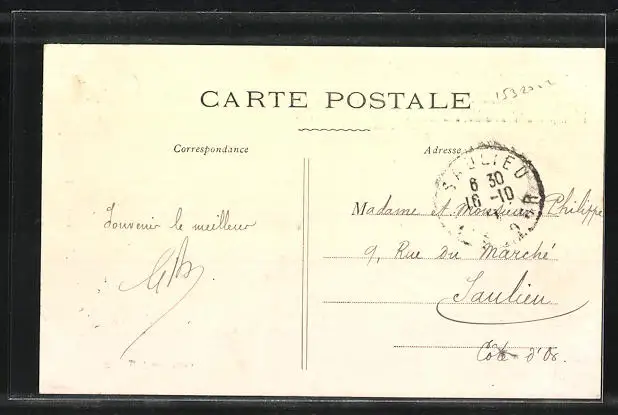 CARTE POSTALE
Correspondance
Adresse
SAULIEU
6 30
16 -10
Souvenir le meilleur
Madame et Monsieur Philippe
9, Rue du Marché
Saulieu
Côte d'Or.